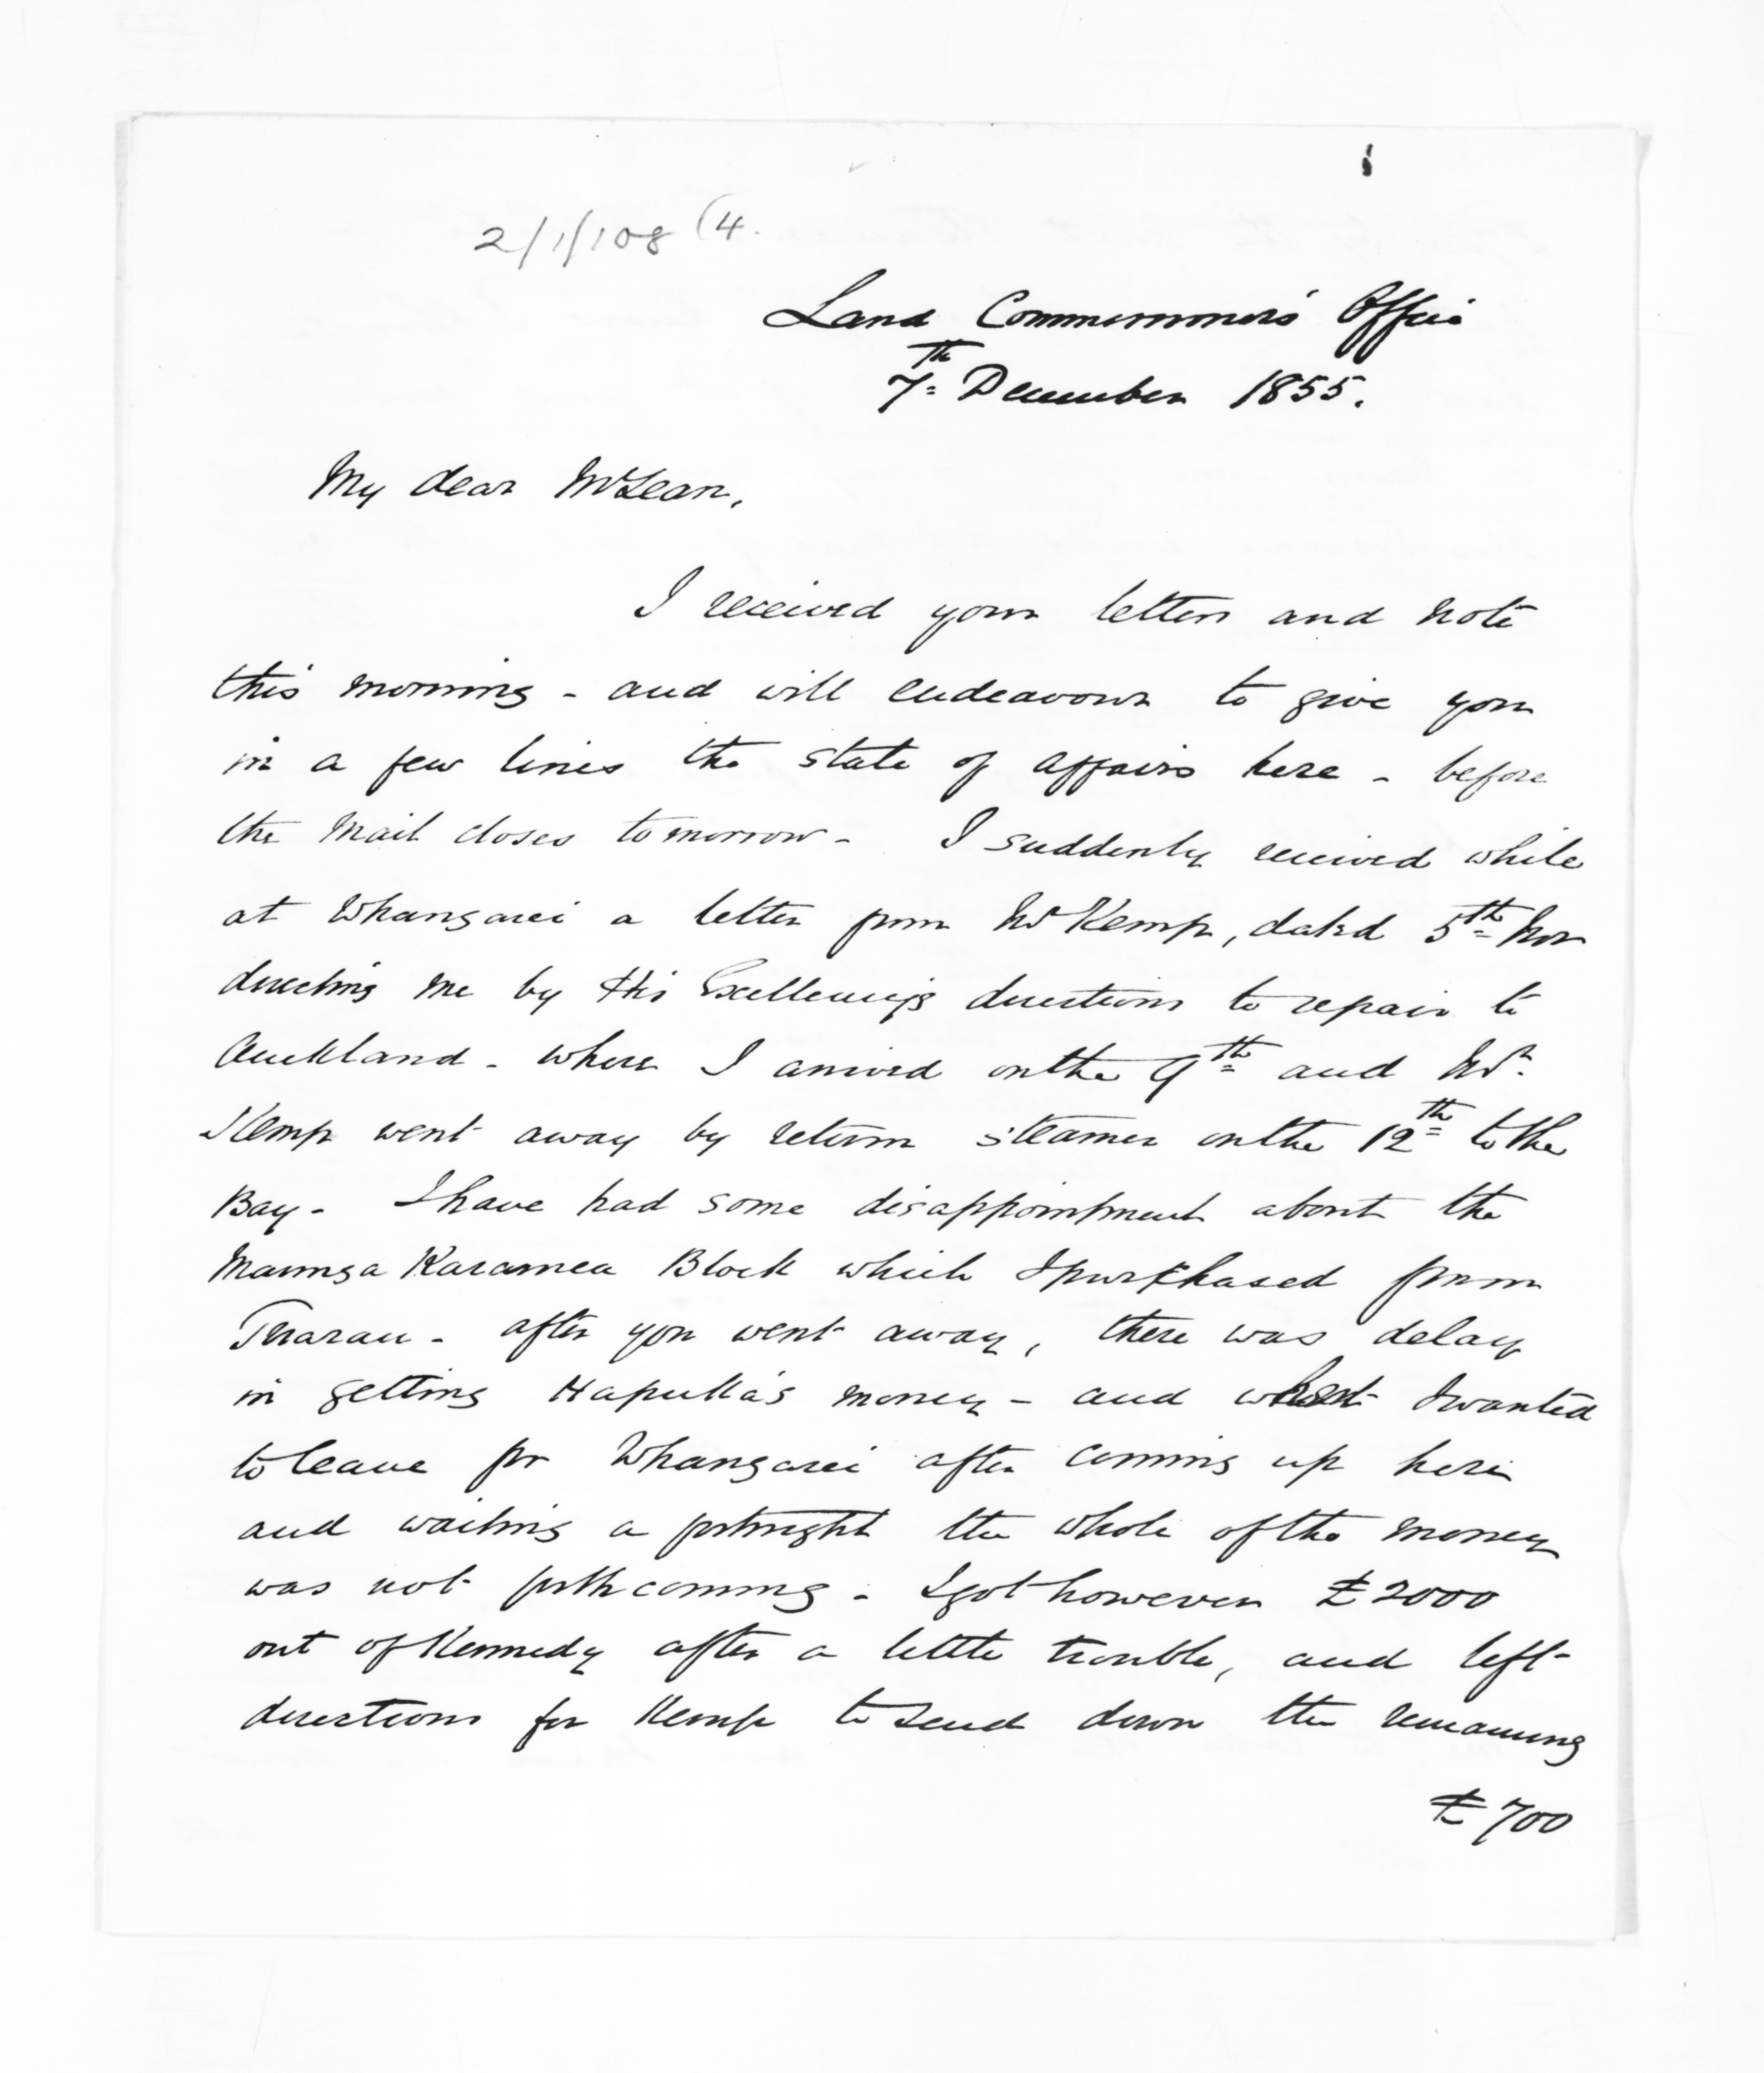 2/1/108 (4.
Land Commissioners' Office
7th December 1855.
My dear McLean,
I received your letters and note
this morning - and will endeavour to give you
in a few lines the state of affairs here - before
the Mail closes tomorrow - I suddenly received while
at Whangarei a letter from Mr Kemp, dated 5th Nov
directing me by His Excellency's directions to repair to
Auckland - where I arrived on the 9th and Mr.
Kemp went away by return steamer on the 12th to the
Bay - I have had some disappointment about the
Maunga Karamea Block which I purchased from
Tirarau - after you went away, there was delay
in getting Hapuka's money - and when I wanted
to leave for Whangarei after coming up here
and waiting a fortnight the whole of the money
was not forthcoming - I got however £2000
out of Kennedy after a little trouble, and left
directions for Kemp to send down the remaining
£700